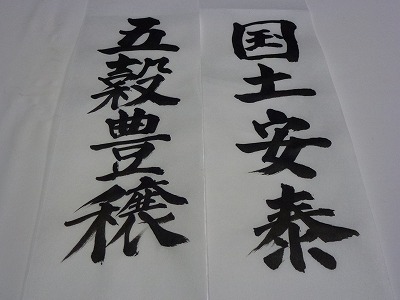 国土安泰
五穀豊穣